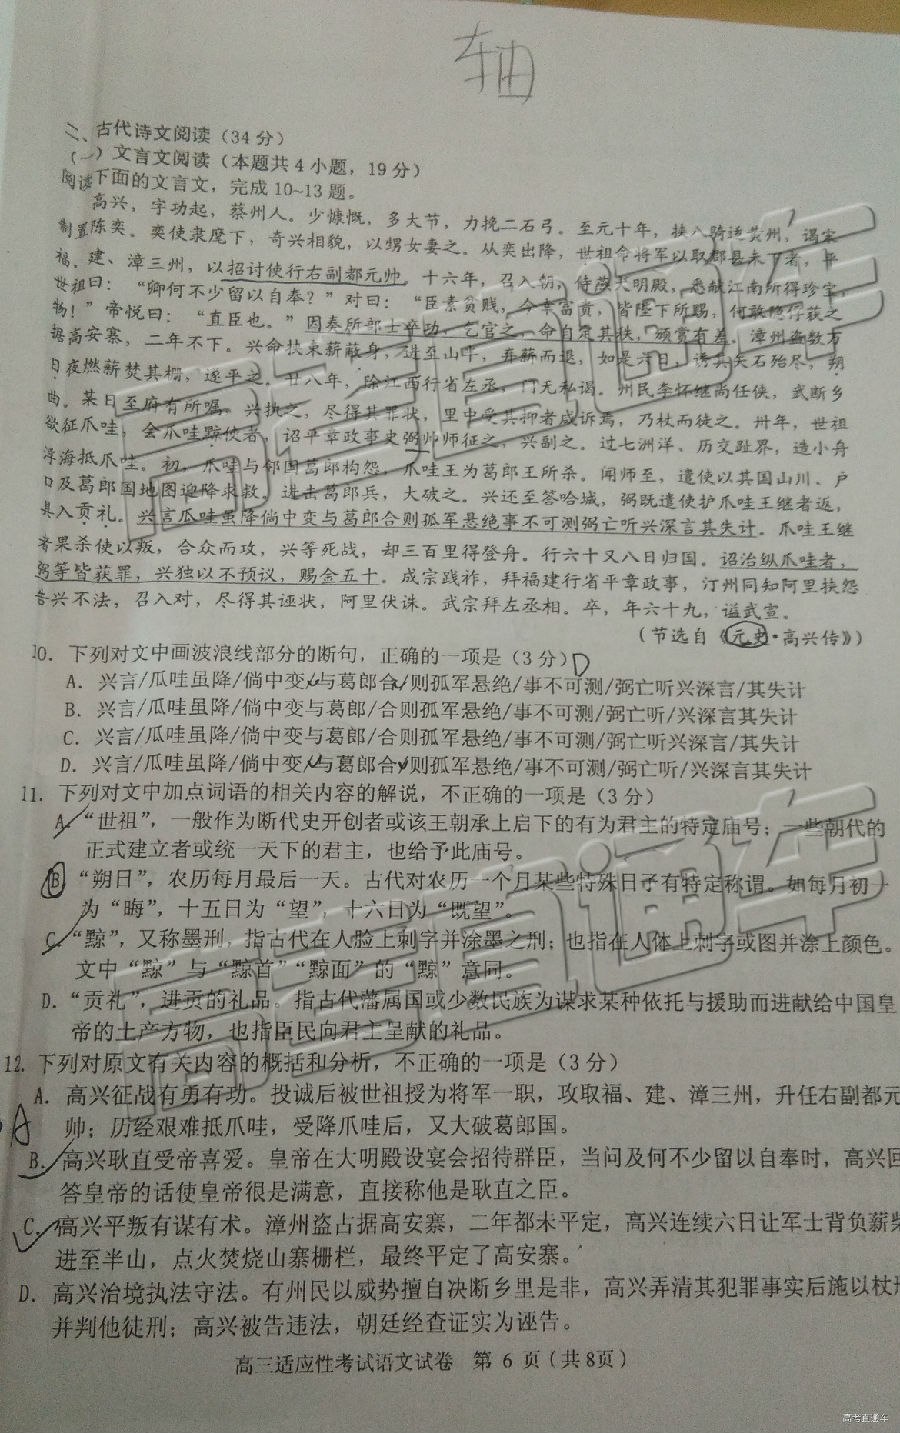 轴
二、古代诗文阅读（34分）
（一）文言文阅读（本题共4小题，19分）
阅读下面的文言文，完成10~13题。
高兴，字功起，蔡州人。少慷慨，多大节，力挽二石弓。至元十年，挟八骑诣黄州，谒宋
制置陈奕。奕使隶麾下，奇兴相貌，以甥女妻之。从奕出降，世祖命将军以取郡县未下者，平
福、建、漳三州，以招讨使行右副都元帅。十六年，召入朝，侍燕大明殿，悉献江南所得珍宝，
世祖曰：“卿何不少留以自奉？”对曰：“臣素贫贱，今幸富贵，皆陛下所赐，何敢隐俘获之
物！”帝悦曰：“直臣也。”因奏所部士卒功，乞官之，命自定其秩，颁赏有差。漳州盗数万
据高安寨，二年不下。兴命挟束薪蔽身，进至山半，弃薪而退，如是六日，诱其矢石殆尽，朔
日夜燃薪焚其栅，遂平之。廿八年，除江西行省左丞，门无私谒。州民李怀继尚任侠，武断乡
曲。某日至府有所嘱，兴执之，尽得其罪状，里中受其抑者咸诉焉，乃杖而徒之。卅年，世祖
欲征爪哇，会爪哇黥使者，诏平章政事史弼帅师征之，兴副之。过七洲洋、历交趾界，造小舟
浮海抵爪哇。初，爪哇与邻国葛郎构怨，爪哇王为葛郎王所杀。闻师至，遣使以其国山川、户
口及葛郎国地图迎降求救。进击葛郎兵，大破之。兴还至答哈城，弼既遣使护爪哇王继者返，
具入贡礼。兴言瓜哇虽降倘中变与葛郎合则孤军悬绝事不可测弼亡听兴深言其失计。爪哇王继
者果杀使以叛，合众而攻，兴等死战，却三百里得登舟。行六十又八日归国。诏治纵爪哇者，
弼等皆获罪，兴独以不预议，赐金五十。成宗践祚，拜福建行省平章政事，汀州同知阿里挟怨
告兴不法，召入对，尽得其诬状，阿里伏诛。武宗拜左丞相。卒，年六十九，谥武宣。
（节选自《元史·高兴传》）
10．下列对文中画波浪线部分的断句，正确的一项是（3分）D
A．兴言/瓜哇虽降/倘中变/与葛郎合/则孤军悬绝/事不可测/弼亡听兴深言/其失计
B．兴言/瓜哇虽降/倘中变与葛郎/合则孤军悬绝/事不可测/弼亡听/兴深言其失计
C．兴言/瓜哇虽降/倘中变与葛郎/合则孤军悬绝/事不可测/弼亡听兴深言/其失计
D．兴言/瓜哇虽降/倘中变/与葛郎合/则孤军悬绝/事不可测/弼亡听/兴深言其失计
11．下列对文中加点词语的相关内容的解说，不正确的一项是（3分）
A.“世祖”，一般作为断代史开创者或该王朝承上启下的有为君主的特定庙号；一些朝代的
正式建立者或统一天下的君主，也给予此庙号。
B.“朔日”，农历每月最后一天。古代对农历一个月某些特殊日子有特定称谓。如每月初一
为“晦”，十五日为“望”，十六日为“既望”。
C.“黥”，又称墨刑，指古代在人脸上刺字并涂墨之刑；也指在人体上刺字或图并涂上颜色。
文中“黥”与“黥首”“黥面”的“黥”意同。
D.“贡礼”，进贡的礼品。指古代藩属国或少数民族为谋求某种依托与援助而进献给中国皇
帝的土产方物，也指臣民向君主呈献的礼品。
12．下列对原文有关内容的概括和分析，不正确的一项是（3分）
A．高兴征战有勇有功。投诚后被世祖授为将军一职，攻取福、建、漳三州，升任右副都元
帅；历经艰难抵爪哇，受降爪哇后，又大破葛郎国。
A
B．高兴耿直受帝喜爱。皇帝在大明殿设宴会招待群臣，当问及何不少留以自奉时，高兴回
答皇帝的话使皇帝很是满意，直接称他是耿直之臣。
C．高兴平叛有谋有术。漳州盗占据高安寨，二年都未平定，高兴连续六日让军士背负薪柴
进至半山，点火焚烧山寨栅栏，最终平定了高安寨。
D．高兴治境执法守法。有州民以威势擅自决断乡里是非，高兴弄清其犯罪事实后施以杖刑
并判他徒刑；高兴被告违法，朝廷经查证实为诬告。
高三适应性考试语文试卷 第 6 页（共8页）
高考直通车
高考直通车
高考直通车